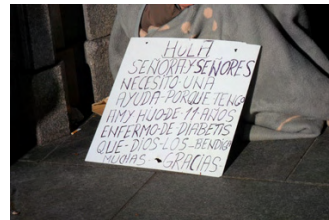 HOLA
SEÑORAY SEÑORES
NECESITO-UNA
AYUDA-PORQUE TENGO
AMY HIJO-DE 11-AÑOS
ENFERMO-DE DIABETIS
QUE-DIOS-LOS-BENDIGA
MUCIAS-GRACIAS